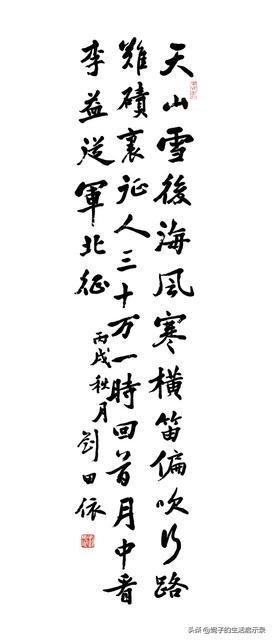 天山雪後海風寒橫笛偏吹行路
難磧裏征人三十万一時回首月中看
李益從軍北征
丙戌秋月劉田依
头条 @子的生活启示录